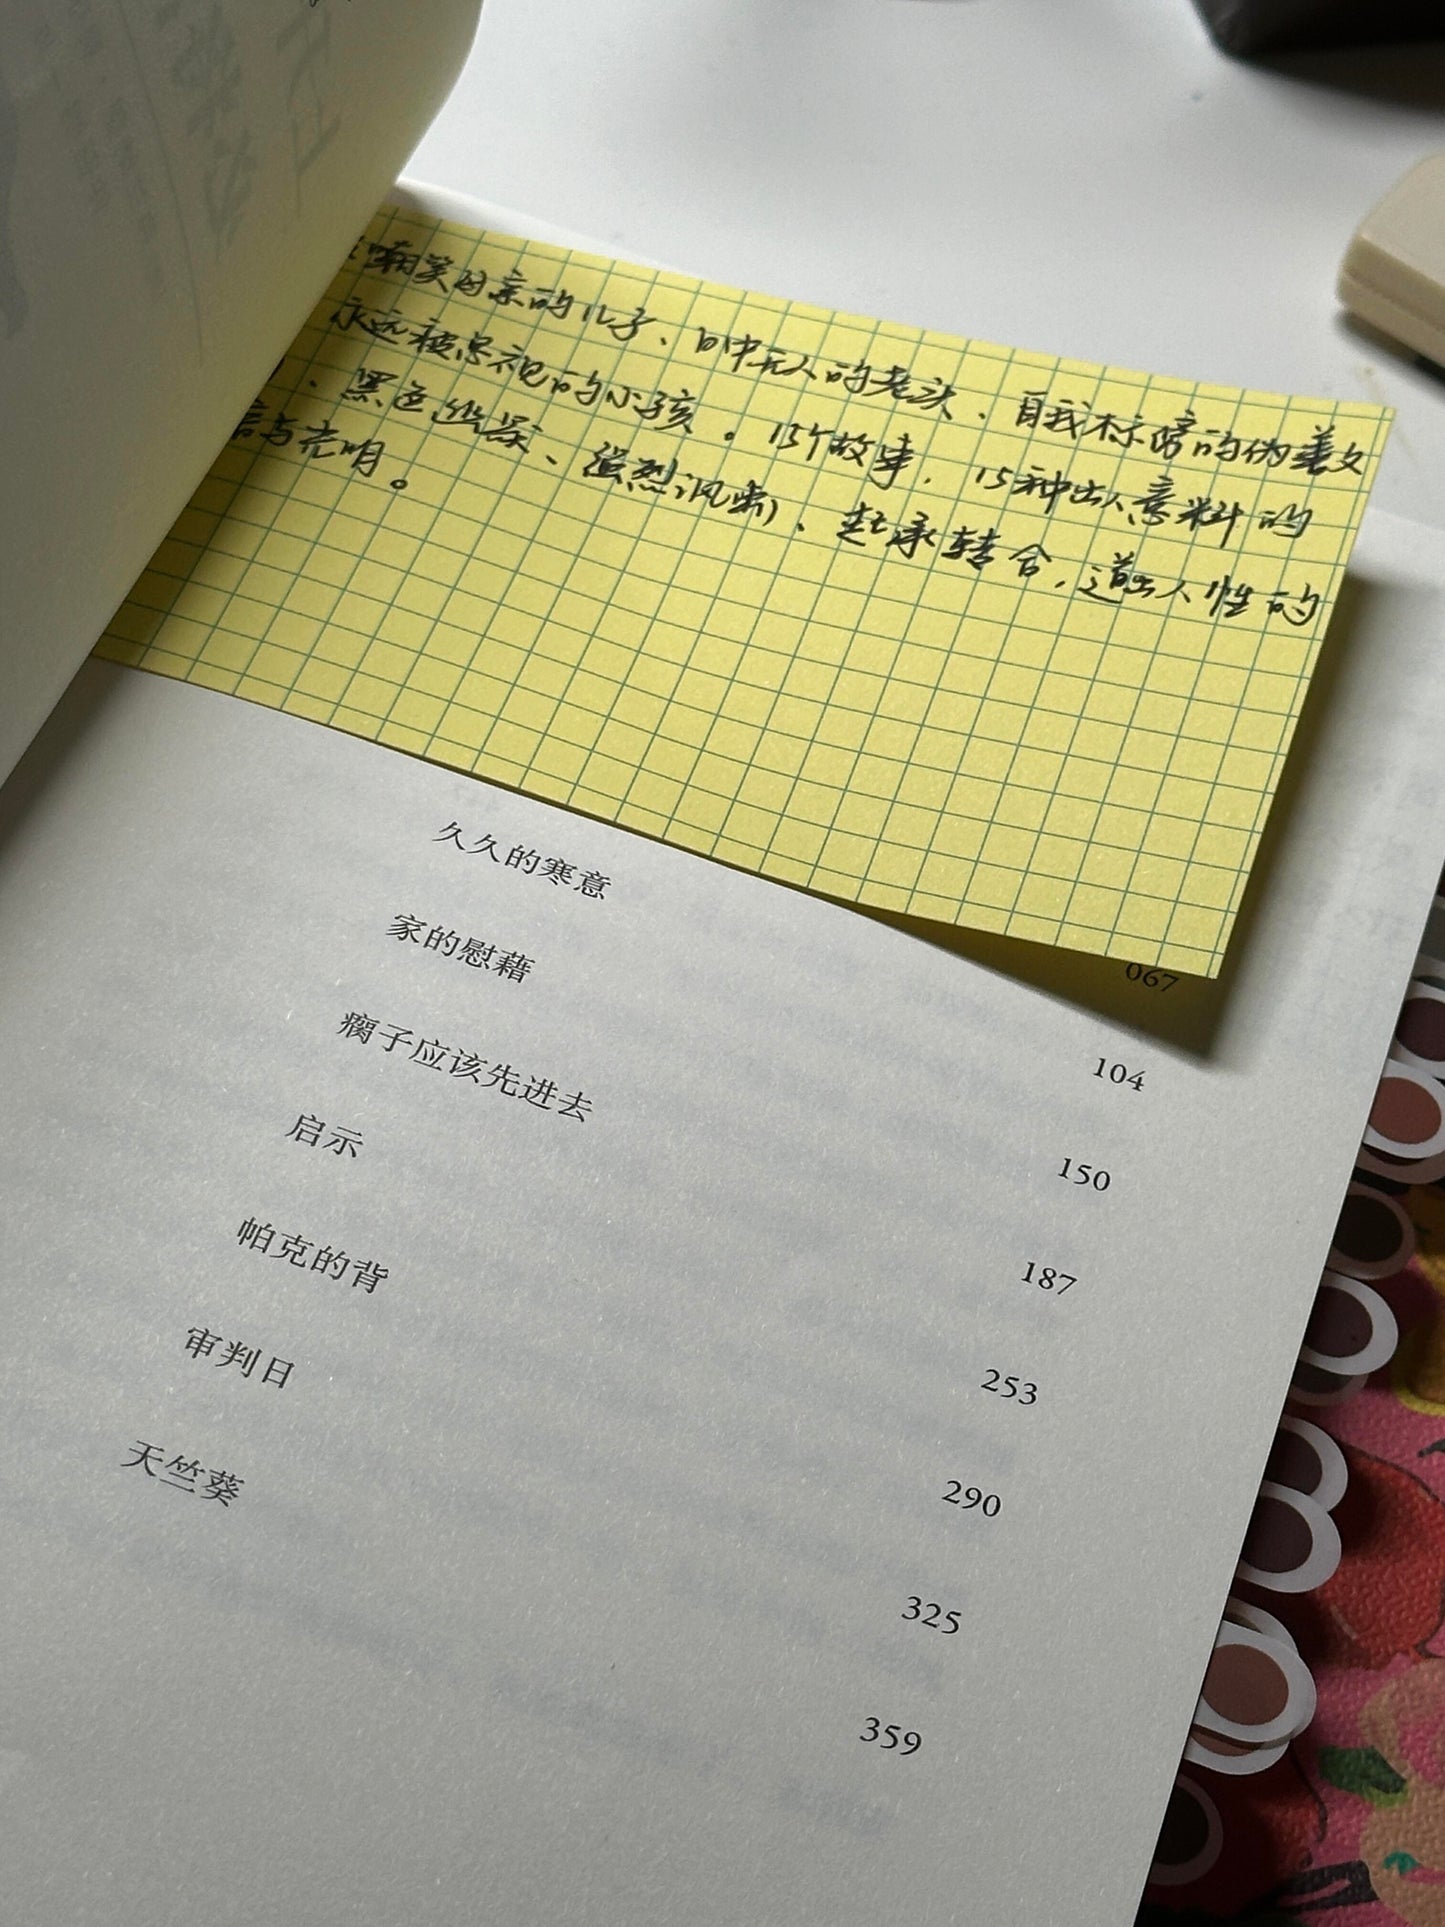 嘲笑母亲的儿子、目中无人的老头、自我标榜的伪善文
永远被忽视的小孩。15个故事,15种出人意料的
、黑色幽默、强烈讽刺、起承转合,道出人性的
与光明。
067
久久的寒意 104
家的慰藉 150
瘸子应该先进去 187
启示 253
帕克的背 290
审判日 325
天竺葵 359